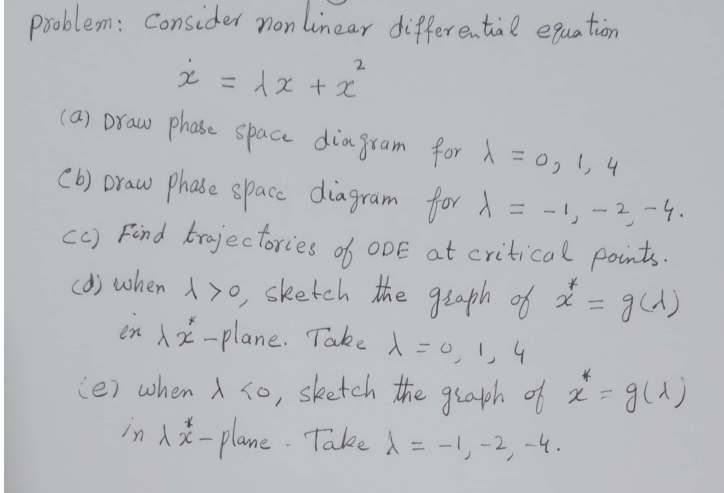 problem: Consider non linear differential equation
ẋ = λx + x²
(a) Draw phase space diagram for λ = 0, 1, 4
(b) Draw phase space diagram for λ = -1, -2, -4.
(c) Find trajectories of ODE at critical points.
(d) when λ > 0, sketch the graph of x* = g(λ)
in λx* -plane. Take λ = 0, 1, 4
(e) when λ < 0, sketch the graph of x* = g(λ)
in λx* - plane. Take λ = -1, -2, -4.